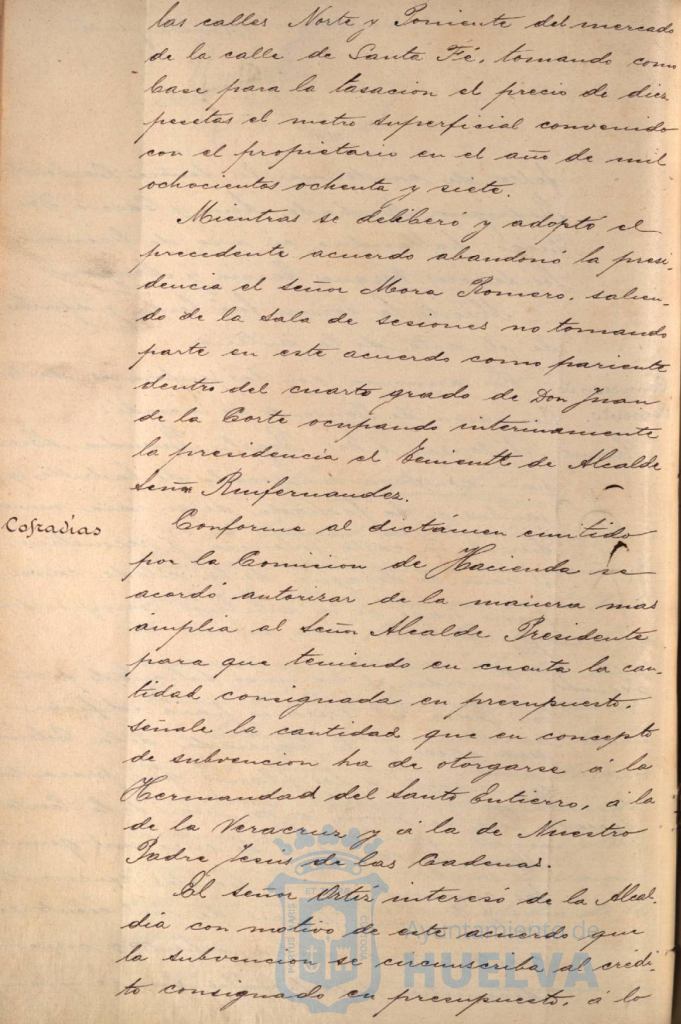 las calles Norte y Poniente del mercado
de la calle de Santa Fé, tomando como
base para la tasacion el precio de diez
pesetas el metro superficial convenido
con el propietario en el año de mil
ochocientos ochenta y siete.
Mientras se deliberó y adoptó el
precedente acuerdo abandonó la presi-
dencia el señor Mora Romero, salien-
do de la sala de sesiones no tomando
parte en este acuerdo como pariente
dentro del cuarto grado de Don Juan
de la Corte ocupando interinamente
la presidencia el Teniente de Alcalde
señor Ruifernandez.
Cofradías
Conforme al dictámen emitido
por la Comision de Hacienda se
acordó autorizar de la manera mas
ámplia al Señor Alcalde Presidente
para que teniendo en cuenta la can-
tidad consignada en presupuesto,
señale la cantidad que en concepto
de subvencion ha de otorgarse á la
Hermandad del Santo Entierro, á la
de la Veracruz y á la de Nuestro
Padre Jesús de las Cadenas.
El señor Ortiz interesó de la Alcal-
día con motivo de este acuerdo que
la subvencion se circunscriba al crédi-
to consignado en presupuesto, á lo
Ayuntamiento de
HUELVA